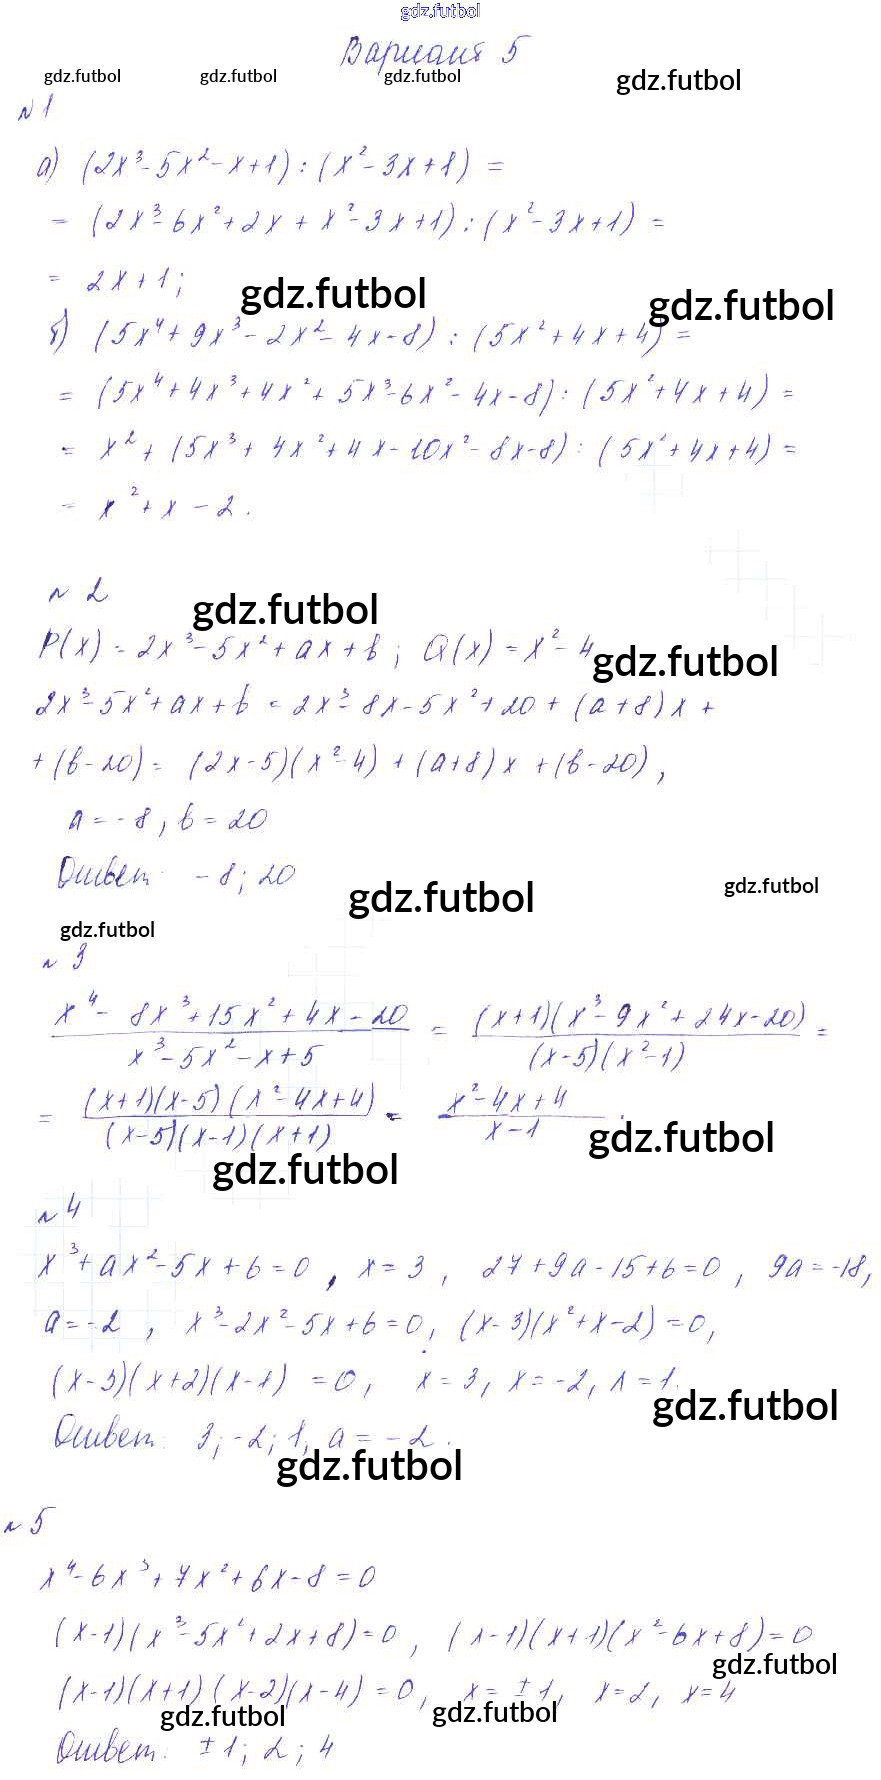 gdz.futbol
Вариант 5
gdz.futbol gdz.futbol gdz.futbol gdz.futbol
№1
а) (2x³-5x²-x+1):(x²-3x+1)=
=(2x³-6x²+2x+x²-3x+1):(x²-3x+1)=
= 2x+1;
gdz.futbol gdz.futbol
б) (5x⁴+9x³-2x²-4x-8):(5x²+4x+4)=
=(5x⁴+4x³+4x²+5x³-6x²-4x-8):(5x²+4x+4)=
= x²+(5x³+4x²+4x-10x²-8x-8):(5x²+4x+4)=
= x²+x-2.
№2
gdz.futbol
P(x)=2x³-5x²+ax+b; Q(x)=x²-4
gdz.futbol
2x³-5x²+ax+b=2x³-8x-5x²+20+(a+8)x+
+(b-20)=(2x-5)(x²-4)+(a+8)x+(b-20),
a=-8, b=20
Ответ: -8; 20
gdz.futbol gdz.futbol
gdz.futbol
№3
(x⁴-8x³+15x²+4x-20)/(x³-5x²-x+5) = ((x+1)(x³-9x²+24x-20))/((x-5)(x²-1)) =
= ((x+1)(x-5)(x²-4x+4))/((x-5)(x-1)(x+1)) = (x²-4x+4)/(x-1).
gdz.futbol
gdz.futbol
№4
x³+ax²-5x+6=0, x=3, 27+9a-15+6=0, 9a=-18,
a=-2, x³-2x²-5x+6=0, (x-3)(x²+x-2)=0,
(x-3)(x+2)(x-1)=0, x=3, x=-2, x=1.
gdz.futbol
Ответ: 3; -2; 1, a=-2.
gdz.futbol
№5
x⁴-6x³+7x²+6x-8=0
(x-1)(x³-5x²+2x+8)=0, (x-1)(x+1)(x²-6x+8)=0
gdz.futbol
(x-1)(x+1)(x-2)(x-4)=0, x=±1, x=2, x=4
gdz.futbol gdz.futbol
Ответ: ±1; 2; 4